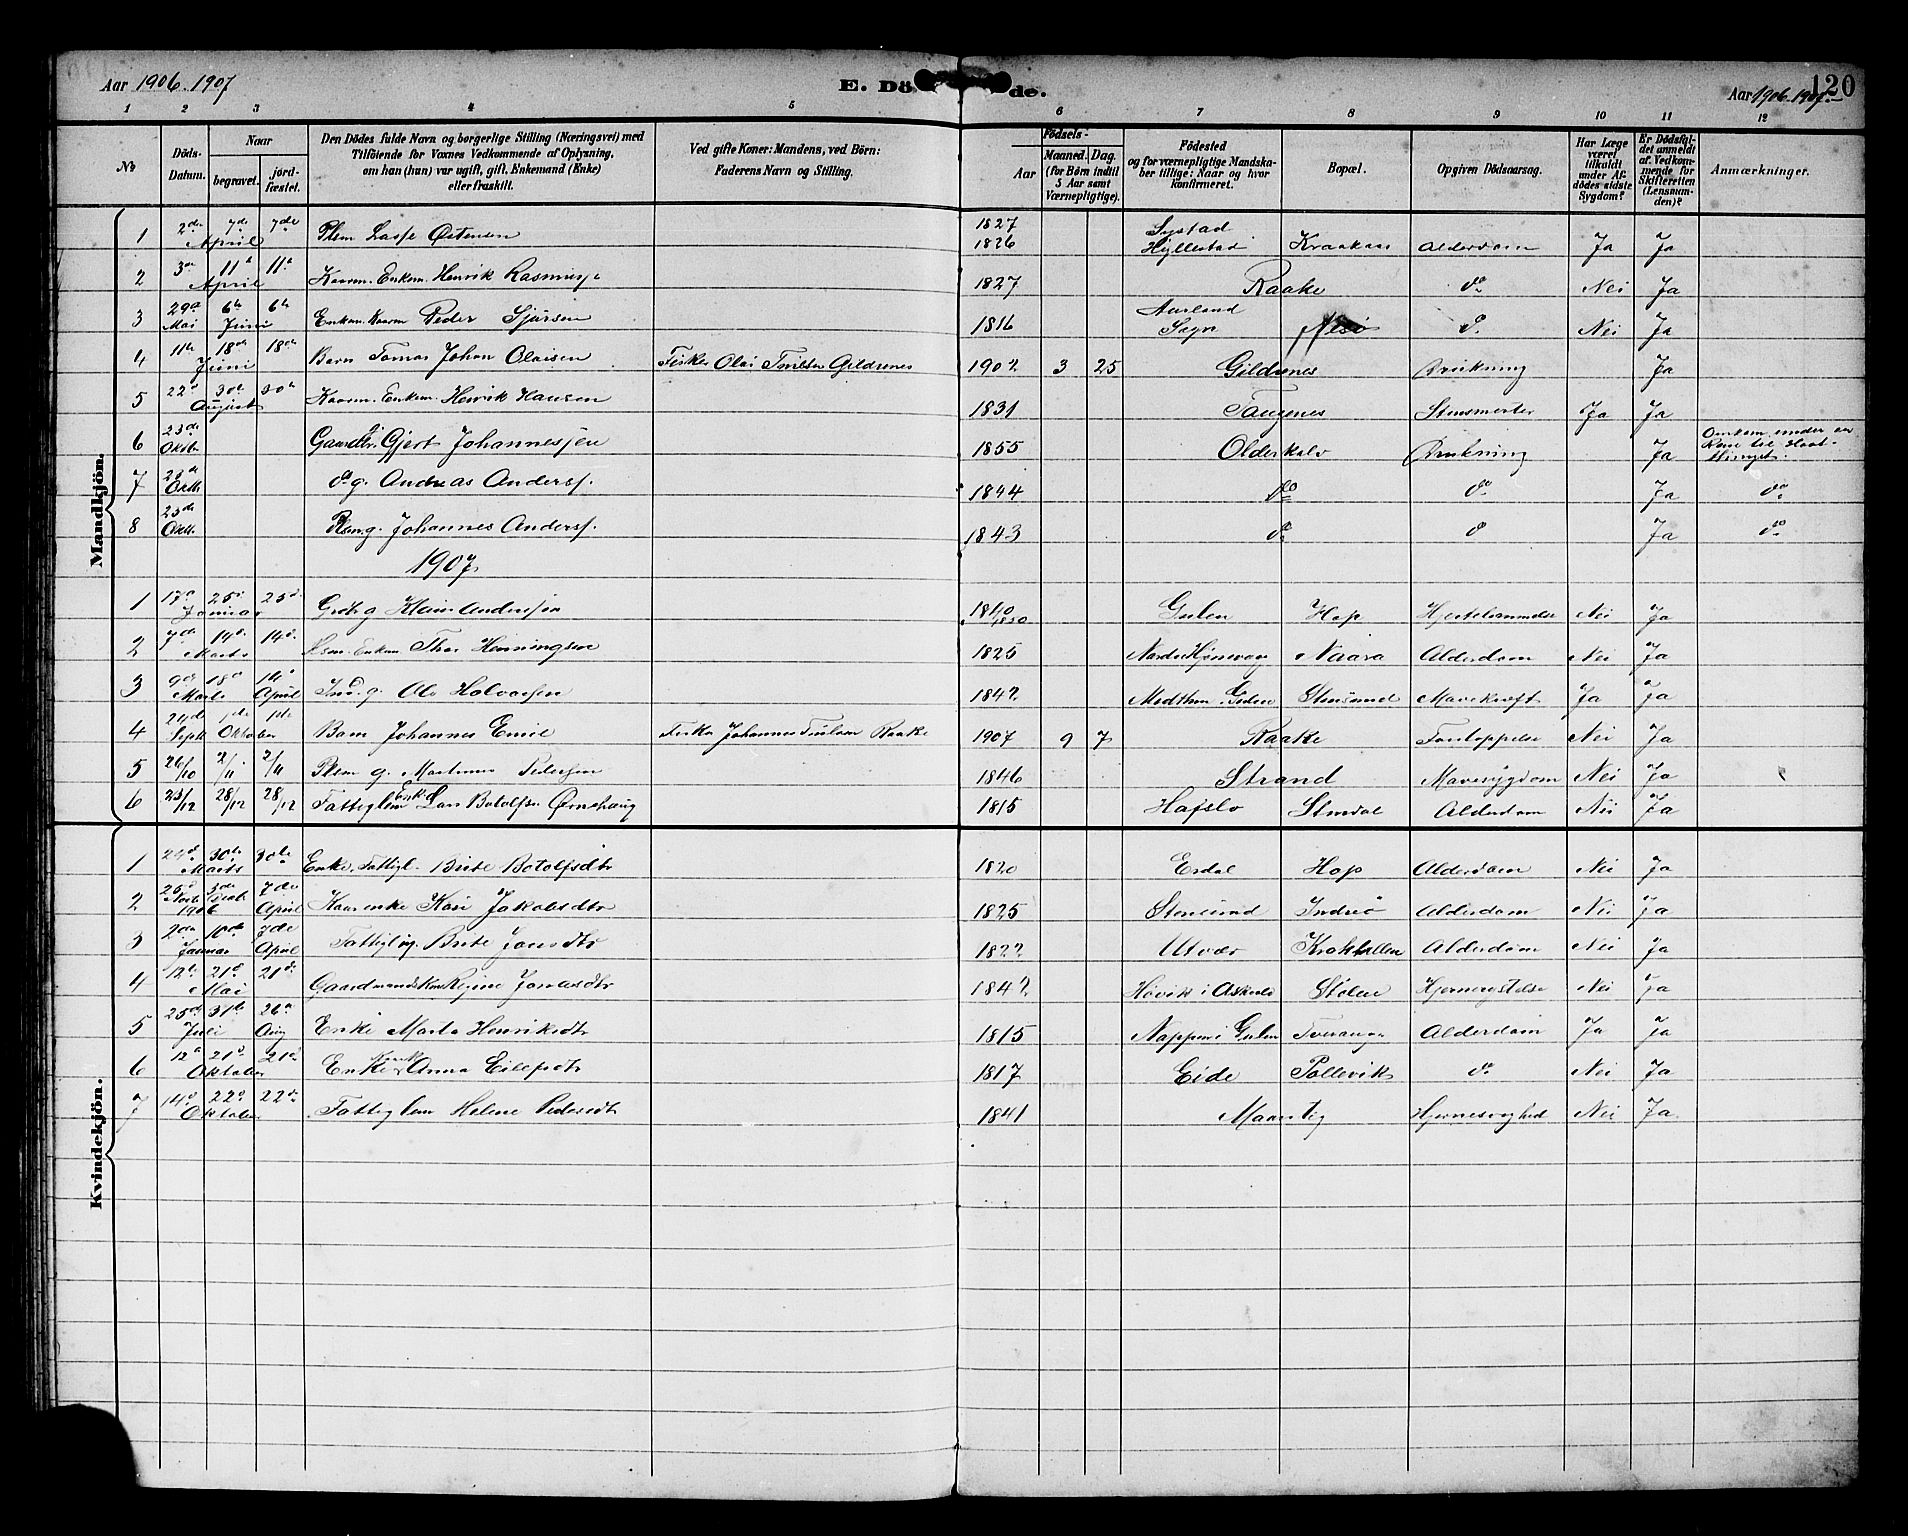 Aar 1906. 1907
E. Dö
de.
Aar 1906. 1907
120
1 2 3 4 5 6 7 8 9 10 11 12
No
Döds-Datum.
Naar
begravet.
jord-fæstet.
Den Dödes fulde Navn og borgerlige Stilling (Næringsvei) med
Tilföiende for Voxnes Vedkommende af Oplysning,
om han (hun) var ugift, gift, Enkemand (Enke)
eller fraskilt.
Ved gifte Koner: Mandens, ved Börn:
Faderens Navn og Stilling.
Födsels-
Aar
Maaned. Dag.
(for Börn indtil
5 Aar samt
Værnepligtige).
Födested
og for værnepligtige Mandska-
ber tillige: Naar og hvor
konfirmeret.
Bopæl.
Opgiven Dödsaarsag.
Har Læge
været
tilkaldt
under Af-
dödes sidste
Sygdom?
Er Dödsfal-
det anmeldt
af Vedkom-
mende for
Skifteretten
(Lensmun-
den)?
Anmærkninger.
Mandkjön.
1 2de April 7de 7de Lasse Østensen 1827 1826 Systad Hyllestad Kraakaas Alderdom Ja Ja
2 3de April 11te 11te Kaarm. Enkem. Henrik Rasmuss. 1827 Raake do Nei Ja
3 29de Mai 6te Juni 6te Enkem. Kaarm Peder Sjursen 1816 Aurland Sogn do Nei Ja
4 11te Juni 18de 18de Barn Tomas Johan Olaisen Fisker Olai Gildrenes 1902 3 25 Gildrenes Drukning Ja
5 22de August 30te 30te Kaarm. Enkem. Henrik Hansen 1831 Taugenes Stensmerter Ja Ja
6 23de Oktbr Gaardbr. Gjert Johannessen 1855 Olderkalv Drukning Ja Omkom under en Reise til
7 23de Oktb do g. Andreas Anderss. 1844 do do Ja do
8 23de Oktb. g. Johannes Anderss. 1843 do do Ja do
1907
1 17de Januar 25de 25de g Anderssen 1840 1850 Gulen Hop Nei Ja
2 7de Marts 14de 14de Enkem Thor Henningsen 1825 Naara Alderdom Nei Ja
3 9de Marts 18de April g. Ole Halvorsen 1842 Gulen Stensund Mavekræft Ja Ja
4 24de Septb 1ste Oktober 1ste Barn Johannes Emil Fisker Johannes Raake 1907 9 7 Raake Nei Ja
5 26/10 2/11 2/11 g. Martinus Pedersen 1846 Strand Mavesygdom Nei Ja
6 23/12 28/12 28/12 Fattiglem Enkem Lars Botolfsen Ørnehaug 1815 Hafslo Alderdom Nei Ja
Kvindekjön.
1 24de Marts 30te 30te Enke, Fattigl. Brite Botolfsdtr 1820 Erdal Hop Alderdom Nei Ja
2 25de Novb 1906 3de Decb. 7de April Kaarenke Kari Jakobsdtr 1825 Stensund Indreö Alderdom Nei Ja
3 2den Januar 10de 7de April Fattigl ug. Brite Jonsdtr 1822 Utvær Alderdom Nei Ja
4 12te Mai 21de 21de Gaardmandskone Regine Jonasdtr 1842 Høvik i Askvold Stølen Nei Ja
5 25de Juli 31te 26de Aug Enke Marta Henriksdtr 1815 i Gulen Alderdom Ja Ja
6 12te Oktober 21de 21de Enke Anna Eilefsdtr 1817 Eide Pollevik do Nei Ja
7 14de Oktober 22de 22de Fattiglem Helene Pedersdtr 1841 Maursteg Hjernesvaghed Nei Ja